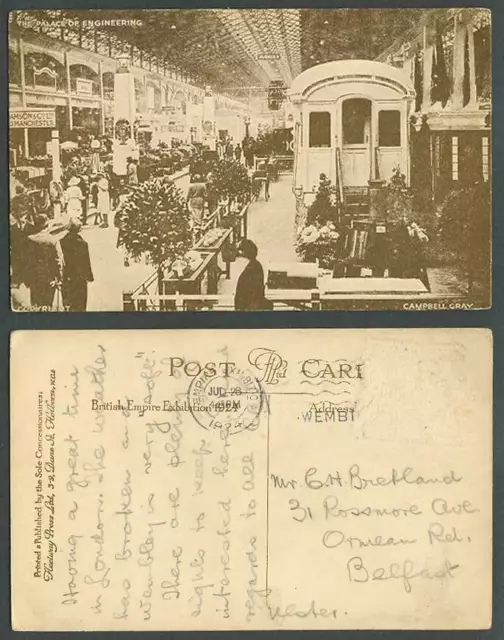 THE PALACE OF ENGINEERING
AMSON & CO LTD
MANCHESTER
COPYRIGHT
CAMPBELL GRAY
POST CARD
British Empire Exhibition 1924
Address
Printed & Published by the Sole Concessionaires:
Fleetway Press Ltd, 3-9, Dane St, Holborn, W.C.1
WEMBLEY
EMPIRE EXHIBITION
JUL 28
1924
WEMBL
Having a great time
in London. The weather
has broken and
Wembley is very soft.
There are plenty of
sights to keep
interested here and
regards to all
Mr. C. H. Bretland
31 Rossmore Ave
Ormeau Rd,
Belfast
Ulster.